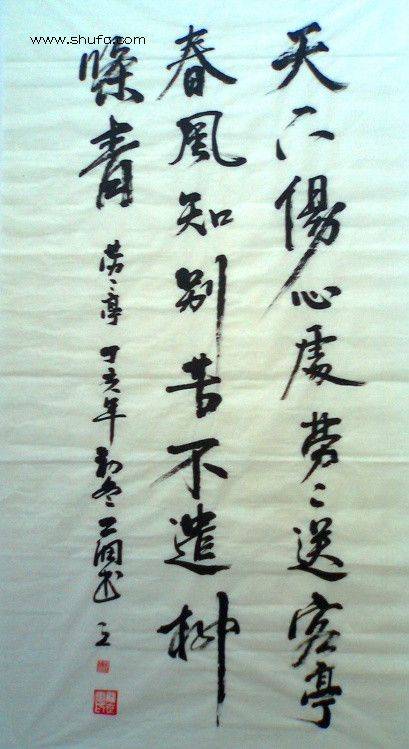 www.shufa.com
天下傷心處勞々送客亭
春風知別苦不遣柳
條青
勞々亭 丁亥年初冬